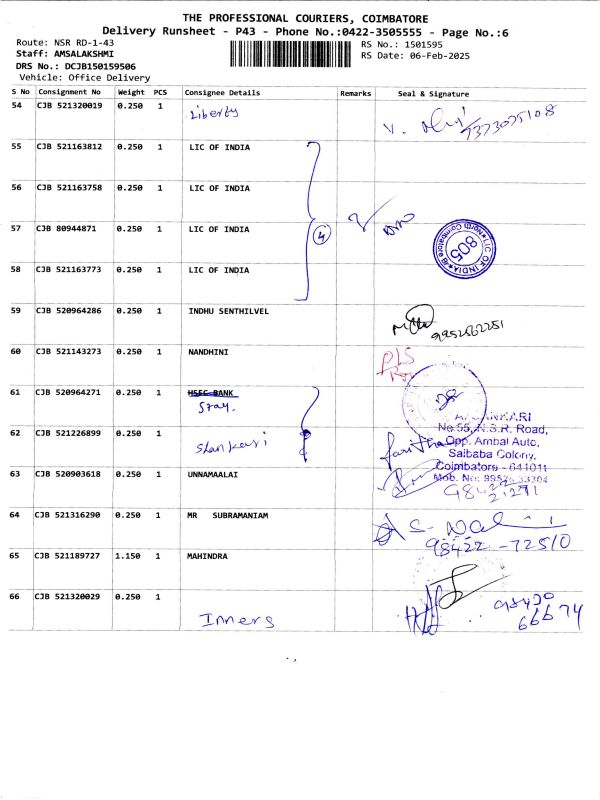 THE PROFESSIONAL COURIERS, COIMBATORE
Delivery Runsheet - P43 - Phone No.:0422-3505555 - Page No.:6
Route: NSR RD-1-43
RS No.: 1501595
Staff: AMSALAKSHMI
RS Date: 06-Feb-2025
DRS No.: DCJB150159506
Vehicle: Office Delivery
S No Consignment No Weight PCS Consignee Details Remarks Seal & Signature
54 CJB 521320019 0.250 1 Liberty 7373075108
55 CJB 521163812 0.250 1 LIC OF INDIA
56 CJB 521163758 0.250 1 LIC OF INDIA
57 CJB 80944871 0.250 1 LIC OF INDIA 4
LIC OF INDIA North Coimbatore 805
58 CJB 521163773 0.250 1 LIC OF INDIA
59 CJB 520964286 0.250 1 INDHU SENTHILVEL
60 CJB 521143273 0.250 1 NANDHINI
61 CJB 520964271 0.250 1 HSFC BANK
No.55, N.S.R. Road,
62 CJB 521226899 0.250 1 Shankari Opp. Ambal Auto,
Saibaba Colony,
Coimbatore - 641011
63 CJB 520903618 0.250 1 UNNAMAALAI
Mob. No:
64 CJB 521316290 0.250 1 MR SUBRAMANIAM
98422-72510
65 CJB 521189727 1.150 1 MAHINDRA
66 CJB 521320029 0.250 1 Inners
66674